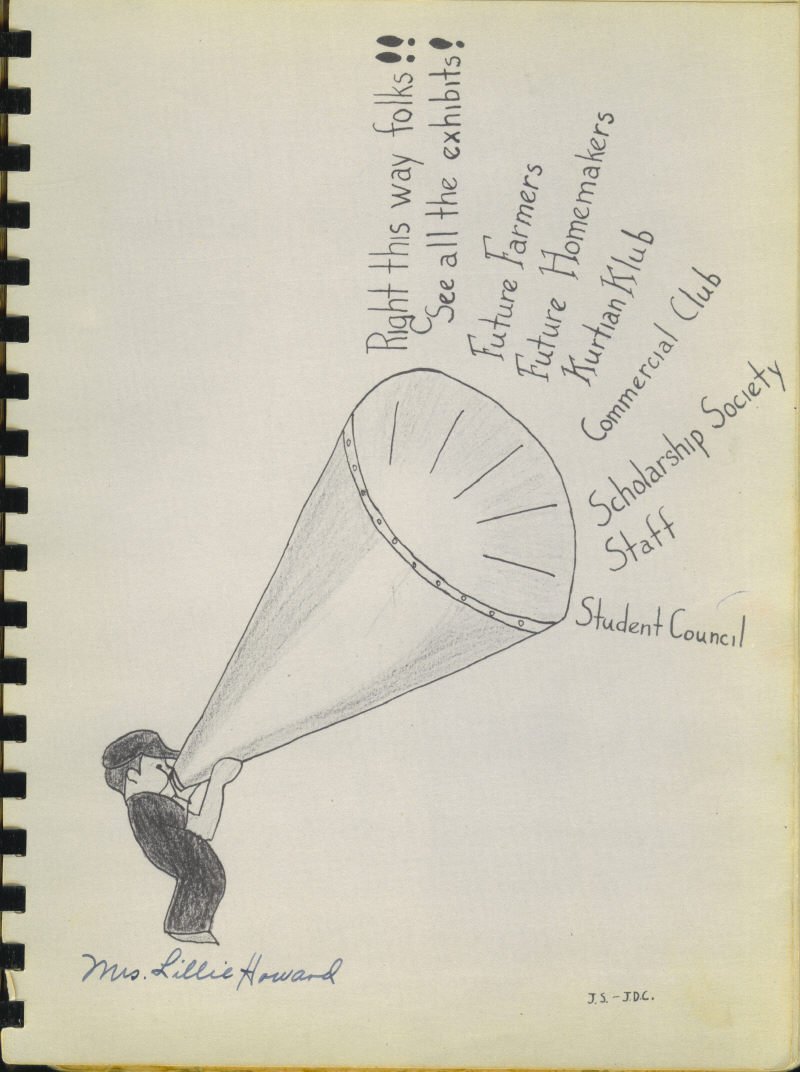 Right this way folks!!
See all the exhibits!
Future Farmers
Future Homemakers
Kurtian Klub
Commercial Club
Scholarship Society
Staff
Student Council
Mrs. Lillie Howard
J.S. - J.D.C.